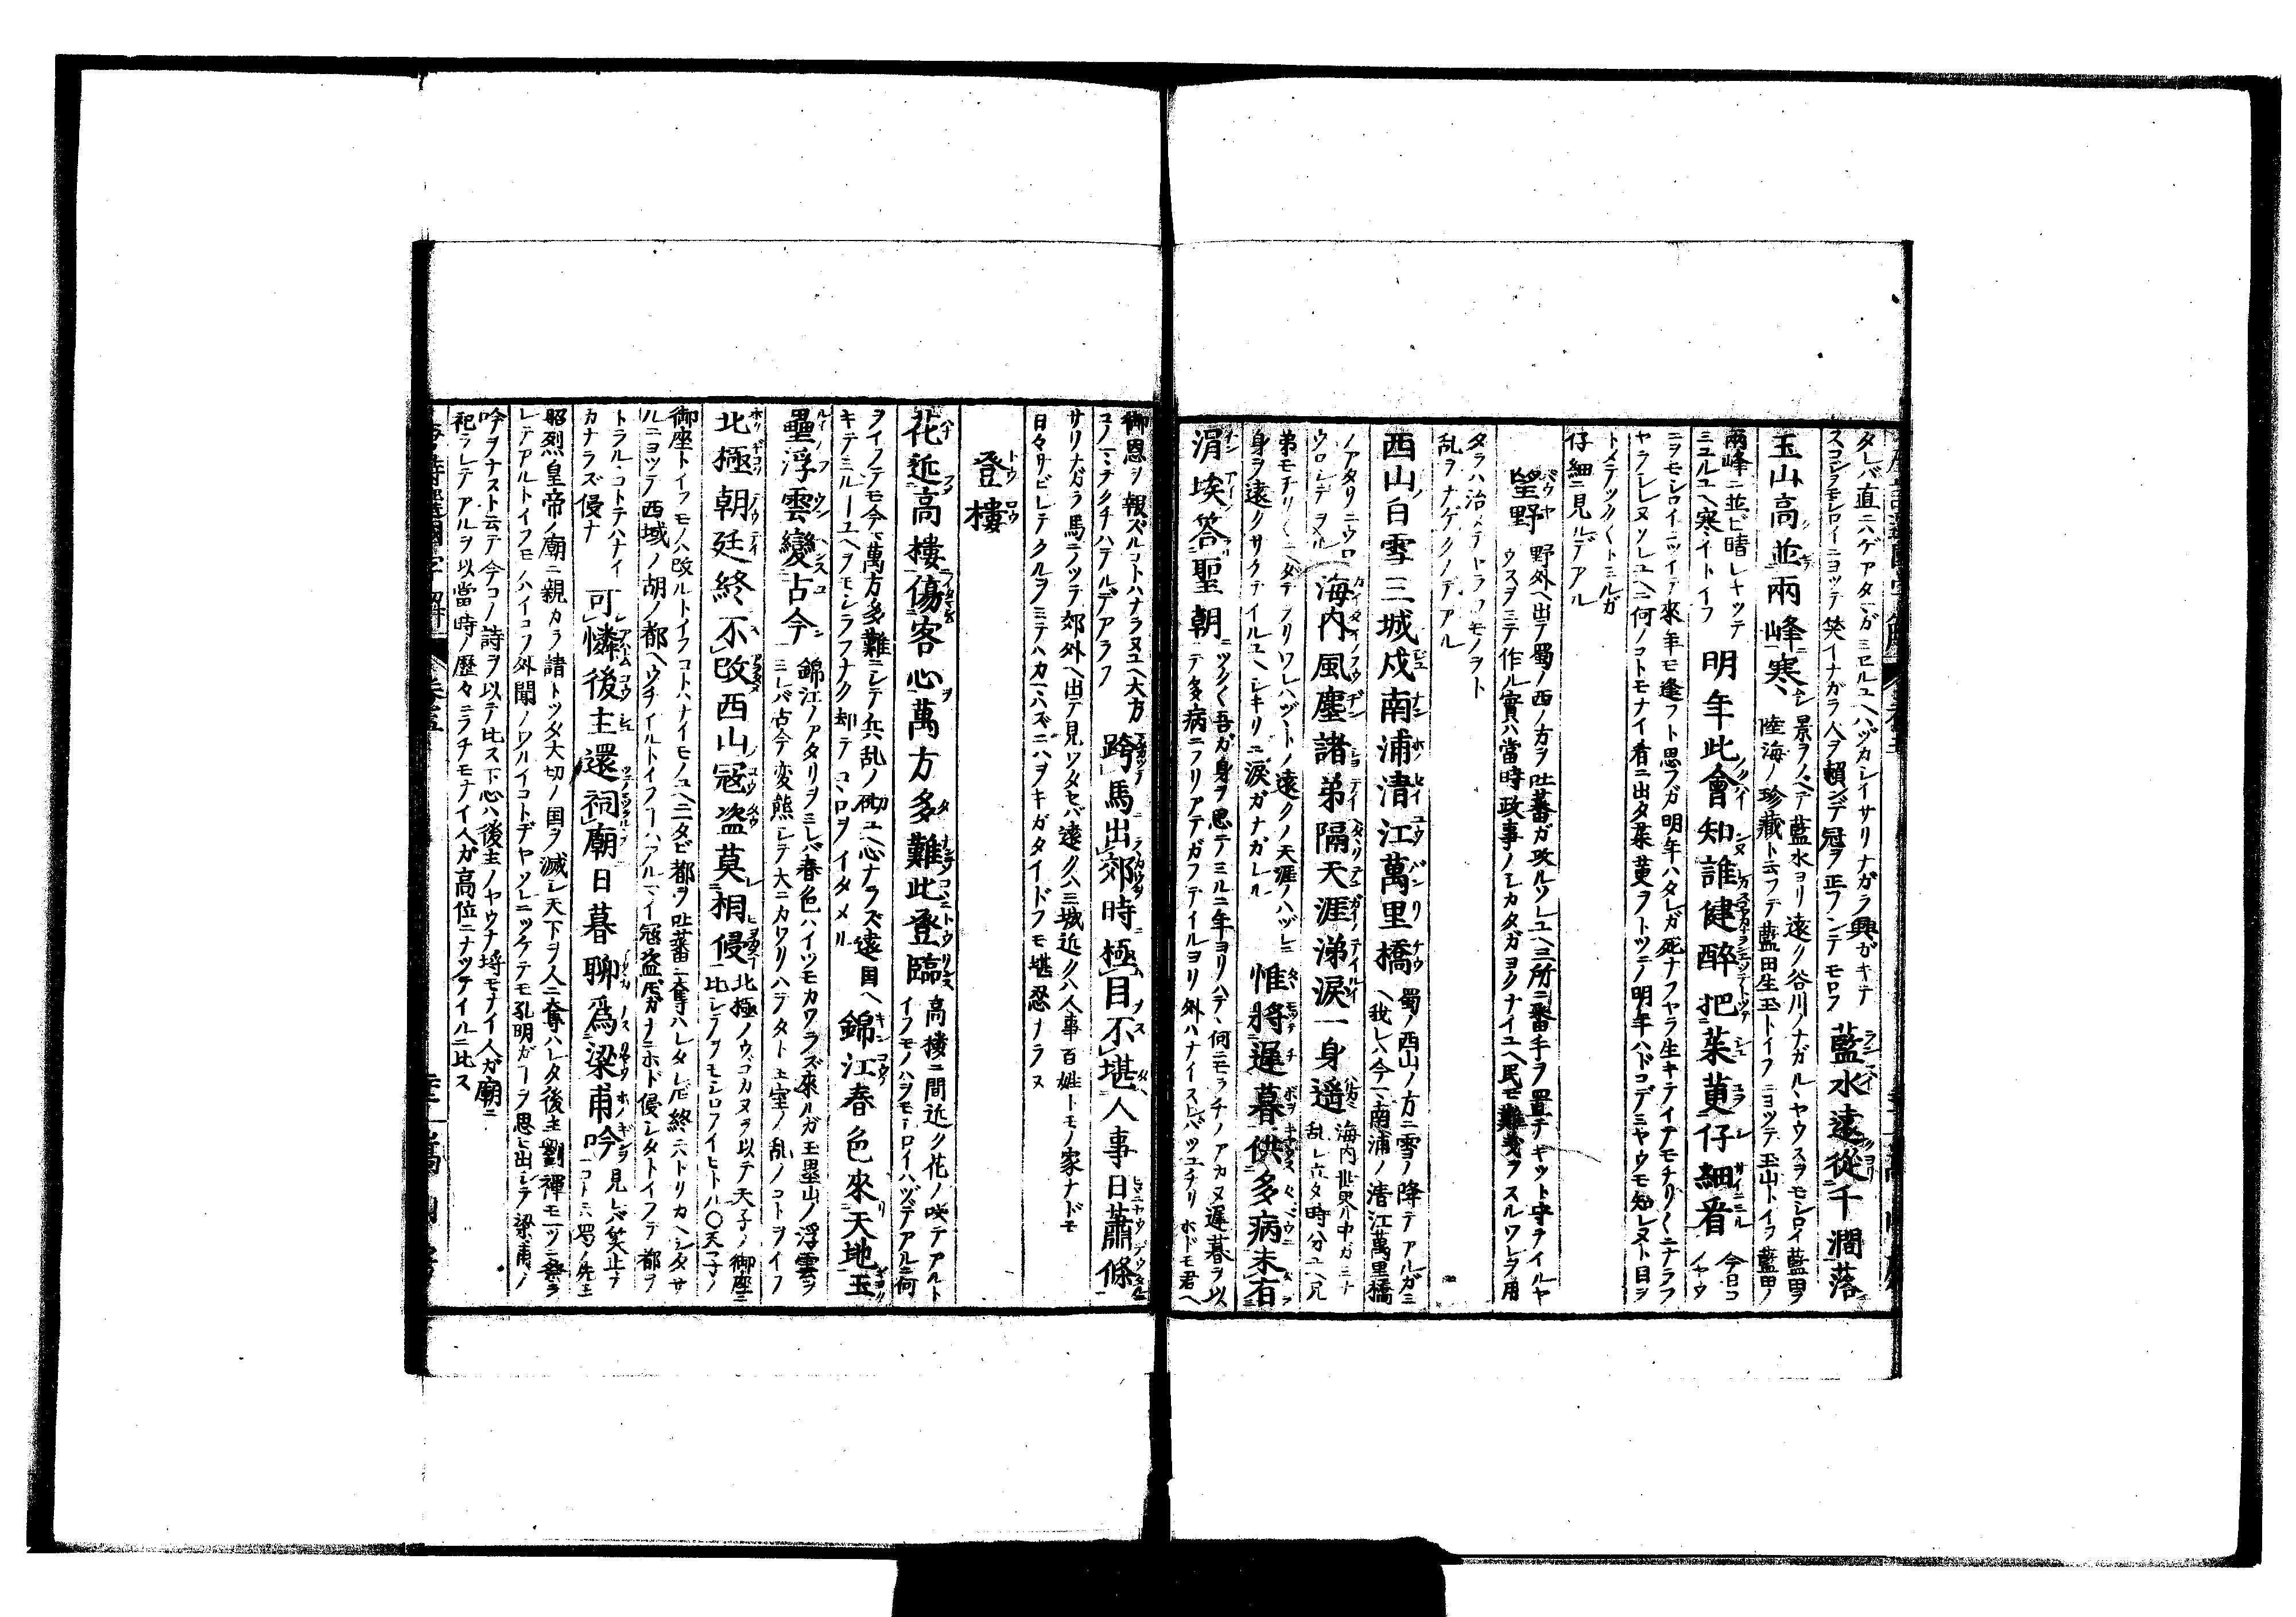 タレバ直ニハゲアタマガミエルユヘハヅカシイサリナガラ興ガキテ
スコシヲモシロイニヨツテ笑イナガラ人ヲ頼ンデ冠ヲ正フシテモロフ
藍水遠從千澗落
玉山高並兩峰寒
景ヲノベテ藍水ヨリ遠ク谷川ノナガルヽヤウスヲモシロイ藍田ヲ
陸海ノ珍藏ト云フテ藍田生玉トイフニヨツテ玉山トイフ藍田ノ
兩峰ニ並ビ晴レキツテ
ミユルユヘ寒イトイフ
明年此會知誰健醉把茱萸仔細看
今日コ
イヤウ
ニヲモシロイニツイテ來年モ逢フト思フガ明年ハタレガ死ナフヤラ生キテイテモチリ〱ニナラフ
ヤラシレヌソレユヘニ何ノコトモナイ看ニ出タ茱萸ヲトツテ明年ハドコデミヤウモ知レヌト目ヲ
トメテツク〱トミルガ
仔細ニ見ルデアル
望野
野外ヘ出テ蜀ノ西ノ方ヲ吐蕃ガ攻ルソレユヘ三所ニ番手ヲ置テキツト守テイルヤ
ウスヲミテ作ル實ハ當時政事ノシカタガヨクナイユヘ民モ難義ヲスルワレヲ用
タラハ治メテヤラフモノヲト
乱ヲナゲクノデアル
西山白雪三城戍南浦清江萬里橋
蜀ノ西山ノ方ニ雪ノ降テアルガミ
ヘ我レハ今南浦ノ清江萬里橋
ノアタリニウロ
ウロシテヲル
海内風塵諸弟隔天涯涕涙一身遥
海内世界中ガミナ
乱レ立タ時分ユヘ兄
弟モチリ〱ニヘダテヲリワレハヅット遠クノ天涯ノハヅレニ
身ヲ遠クサクテイルユヘシキリニ涙ガナガルヽ
惟將遲暮供多病未有
涓埃答聖朝
ツク〱吾ガ身ヲ思テミルニ年ヨリハテ何ニモラチノアカヌ遲暮ヲ以
テ多病ニフリアテガフテイルヨリ外ハナイスレバツユチリホドモ君ヘ
御恩ヲ報ズルコトハナラヌユヘ大方
コノマヽテクチハテルデアラフ
跨馬出郊時極目不堪人事日蕭條
サリナガラ馬ニノツテ郊外ヘ出テ見ワタセバ遠クハ三城近クハ人事百姓トモノ家ナドモ
日々サビレテクルヲミテハカマハズニハヲキガタイドフモ堪忍ナラヌ
登樓
花近高樓傷客心萬方多難此登臨
高樓ニ間近ク花ノ咲テアルト
イフモノハヲモシロイハヅデアルニ何
ヲイフテモ今ハ萬方多難ニシテ兵乱ノ砌ユヘ心ナラズ遠国ヘ
キテミルユヘヲモシラフナク却テココロヲイタメル
錦江春色來天地玉
壘浮雲變古今
錦江ノアタリヲミレバ春色ハイツモカワラズ來ルガ玉壘山ノ浮雲ヲ
ミレバ古今変態シテ大ニカワリハテタト王室ノ乱ノコトヲイフ
北極朝廷終不改西山寇盗莫相侵
北極ノウゴカヌヲ以テ天子ノ御座ニ
比シテヲモシロフイヒトル〇天子ノ
御座トイフモノハ改ルトイフコトハナイモノユヘ二タビ都ヲ吐蕃ニ奪ハレタレ𪜈終ニハトリカヘシタサ
ルニヨツテ西域ノ胡ノ都ヘウチイルトイフコトハアルマイ寇盗𪜈ガナニホド侵シタトイフテ都ヲ
トラルヽコトテハナイ
カナラズ侵ナ
可憐後主還祠廟日暮聊爲梁甫吟
見レバ笑止ナ
コトハ蜀ノ先主
昭烈皇帝ノ廟ニ親カラ諸トツタ大切ノ国ヲ滅シ天下ヲ人ニ奪ハレタ後主劉禪モ一ツニ祭ラ
レテアルトイフモノハイコフ外聞ノワルイコトデヤソレニツケテモ孔明ガコトヲ思ヒ出シテ梁甫ノ
吟ヲナスト云テ今コノ詩ヲ以テ比ス下心ハ後主ノヤウナ埓モナイ人ガ廟ニ
祀ラレテアルヲ以當時ノ歴々ニラチモナイ人ガ高位ニナツテイルニ比ス